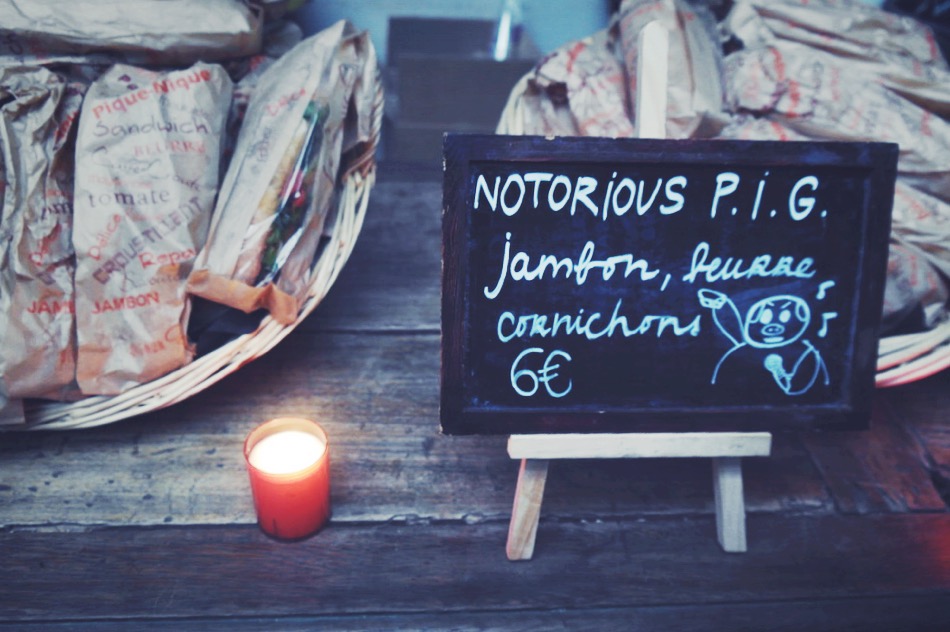 Pique-Nique
Sandwich
BEURRE
tomate
CROUSTILLANT
JAMBON
JAMB
NOTORiOUS P.i.G.
jambon, beurre
cornichons
6€